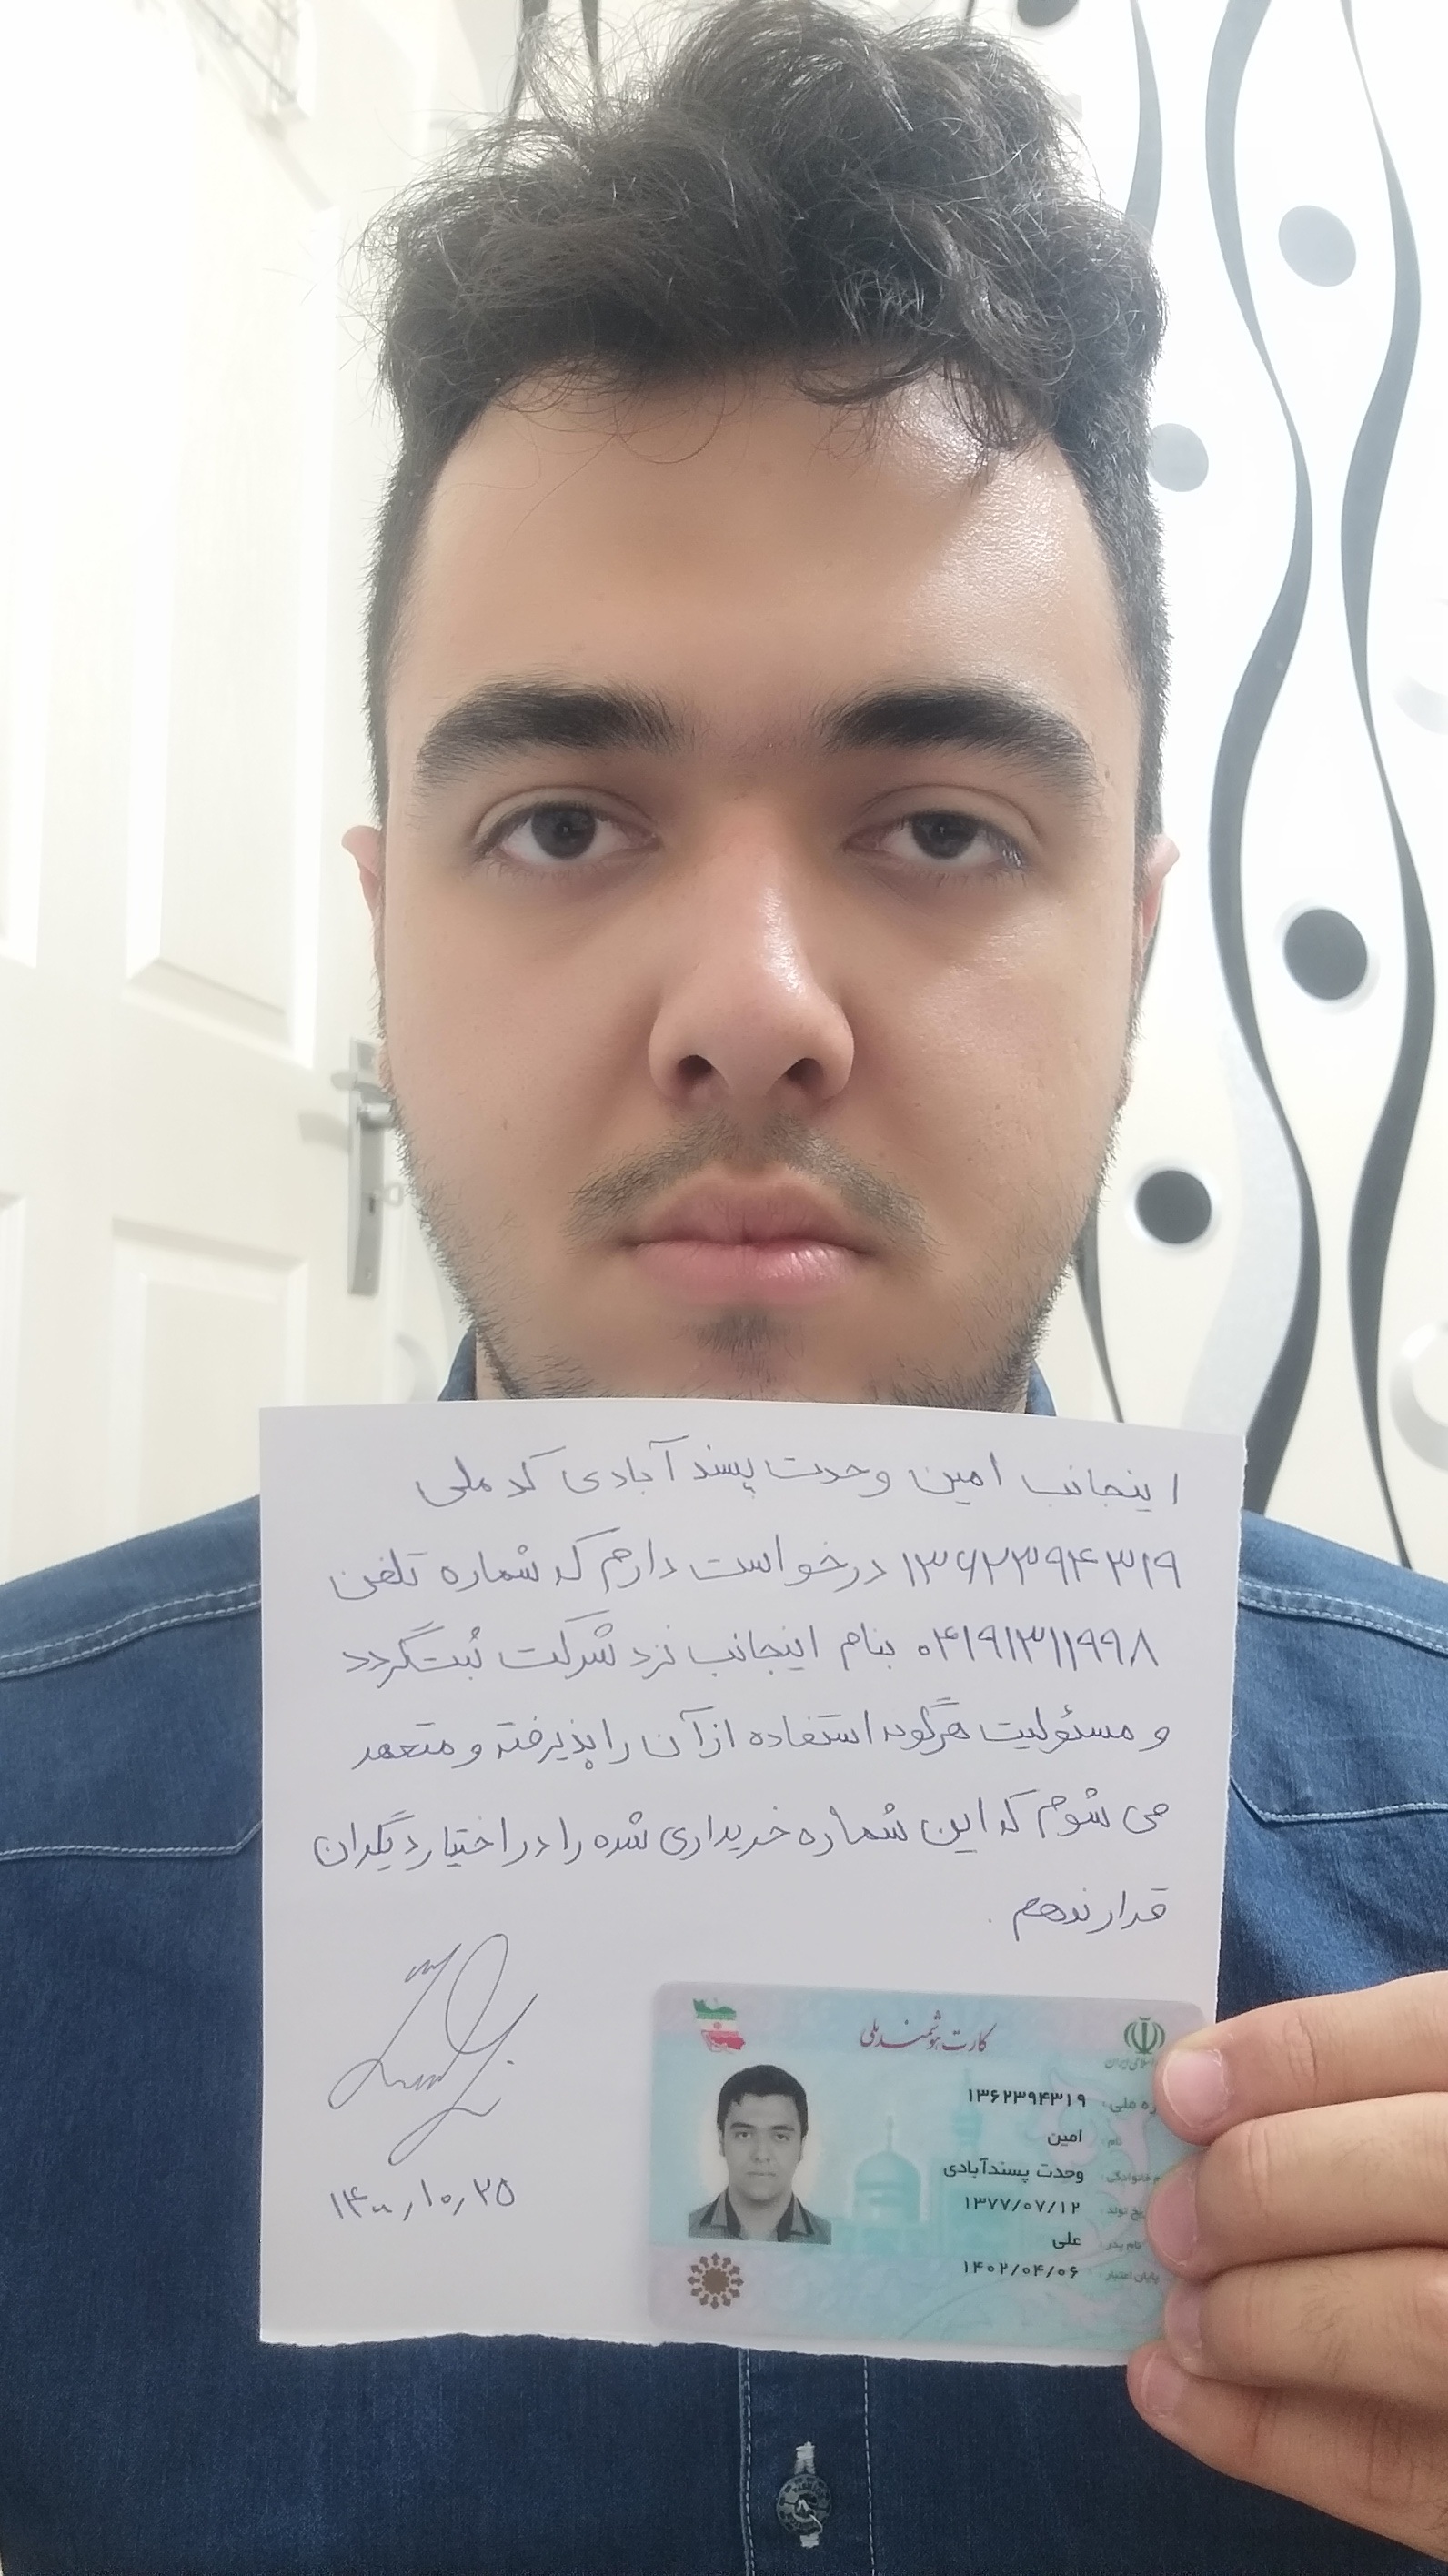 اینجانب امین وحدت پسندآبادی کد ملی
۱۳۶۲۳۹۴۳۱۹ درخواست دارم که شماره تلفن
۰۴۱۹۱۳۱۱۹۹۸ بنام اینجانب نزد شرکت ثبت گردد
و مسئولیت هرگونه استفاده از آن را پذیرفته و متعهد
می شوم که این شماره خریداری شده را در اختیار دیگران
قرار ندهم.
۱۴۰۰/۱۰/۲۵
کارت هوشمند ملی
ملی: ۱۳۶۲۳۹۴۳۱۹
نام: امین
خانوادگی: وحدت پسندآبادی
تولد: ۱۳۷۷/۰۷/۱۲
نام پدر: علی
پایان اعتبار: ۱۴۰۲/۰۴/۰۶